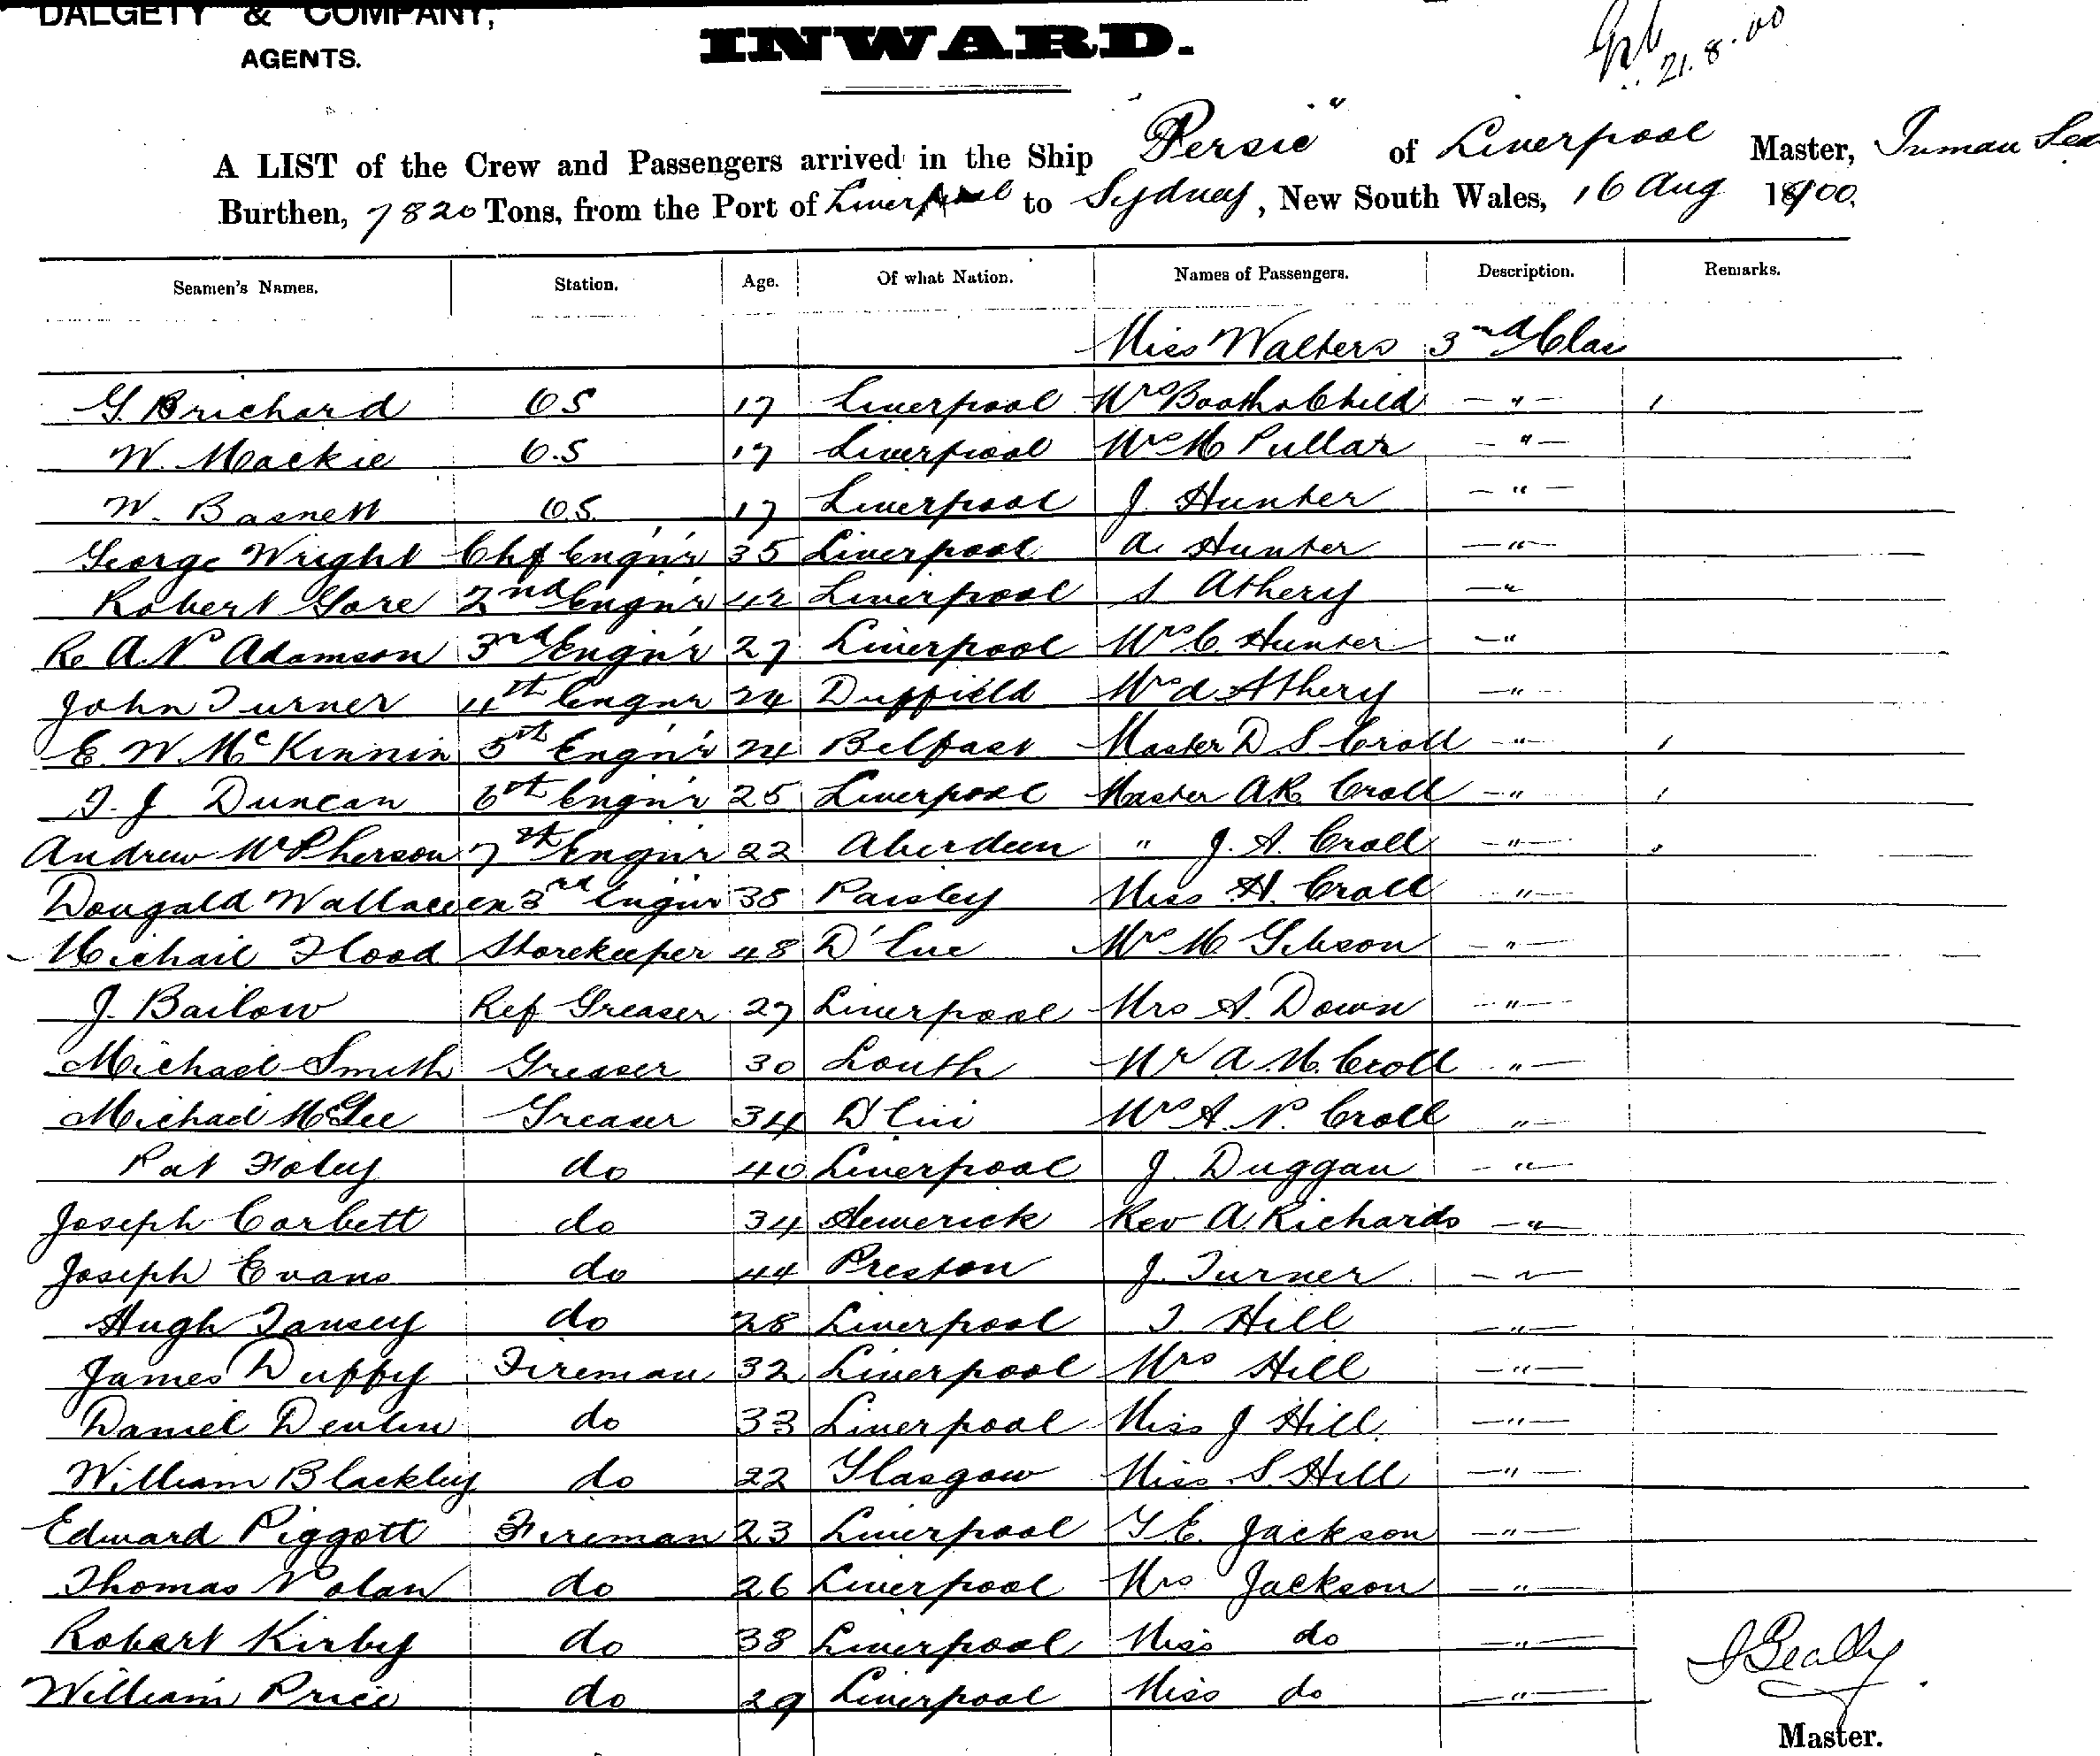 DALGETY & COMPANY,
AGENTS.
INWARD.
21.8.00
A LIST of the Crew and Passengers arrived in the Ship "Persic" of Liverpool Master, Inman
Burthen, 7820 Tons, from the Port of Liverpool to Sydney, New South Wales, 16 Aug 1900.
Seamen's Names. Station. Age. Of what Nation. Names of Passengers. Description. Remarks.
Miss Walters 3rd Clas
G. Brichard OS 17 Liverpool Mrs Booth & Child — " — 1
W. Mackie O.S 17 Liverpool Mrs M Pullar — " —
W. Basnett O.S. 17 Liverpool J Hunter — " —
George Wright Chf Engn'r 35 Liverpool A. Hunter — " —
Robert Gore 2nd Engn'r 42 Liverpool S Athery — "
R. A. N Adamson 3rd Engn'r 27 Liverpool Mrs C. Hunter — "
John Turner 4th Engnr 24 Duffield Mrs A. Athery — "
E. W. McKinnin 5th Engn'r 24 Belfast Master D. S. Croll — " 1
T. J Duncan 6th Engn'r 25 Liverpool Master A.R. Croll — " 1
Andrew McPherson 7th Engn'r 22 Aberdeen " J. A. Croll — " —
Dougald Wallace ex 3rd Engnr 38 Paisley Miss H. Croll " —
Michail Flood Storekeeper 48 D'lue Mrs M Gibson — " —
J. Bailow Ref Greaser 27 Liverpool Mrs A. Down " —
Michael Smith Greaser 30 Louth Mr A. M. Croll " —
Michael McGee Greaser 34 Mrs A. N. Croll " —
Pat Foley do 40 Liverpool J Duggan — " —
Joseph Corbett do 34 Rev A. Richards — " —
Joseph Evans do 44 Preston J. Turner — " —
Hugh Tansey do 28 Liverpool T Hill — " —
James Duffy Fireman 32 Liverpool Mrs Hill — " —
Daniel Devlin do 33 Liverpool Miss J Hill. — " —
William Blackley do 22 Glasgow Miss S. Hill — " —
Edward Piggott Fireman 23 Liverpool T. E. Jackson — " —
Thomas Nolan do 26 Liverpool Mrs Jackson — " —
Robert Kirby do 38 Liverpool Miss do — " —
William Price do 29 Liverpool Miss do — " —
Master.